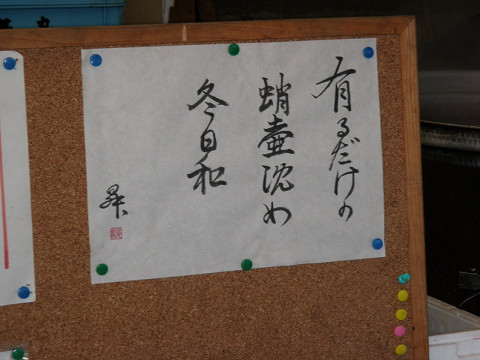 有るだけの
蛸壷沈め
冬日和
昇